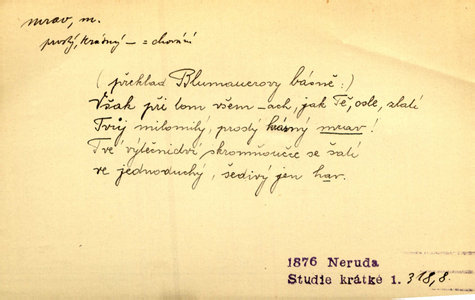 mrav, m.
prostý, krásný — = chování
(překlad Blumauerovy básně:)
Však při tom všem – ach, jak Tě, osle, zlatí
Tvůj milomilý, prostý krásný mrav!
Tvé výtečnictví skromňoučce se šatí
ve jednoduchý, šedivý jen hav.
1876 Neruda
Studie krátké 1. 318,8.